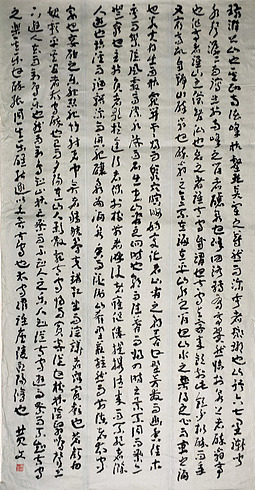 環滁皆山也其西南諸峰林壑尤美望之蔚然而深秀者琅琊也山行六七里漸聞
水聲潺潺而瀉出於兩峰之間者釀泉也峰回路轉有亭翼然臨於泉上者醉翁亭
也作亭者誰山之僧智仙也名之者誰太守自謂也太守與客來飲於此飲少輒醉而年
又最高故自號曰醉翁也醉翁之意不在酒在乎山水之間也山水之樂得之心而寓之酒
也若夫日出而林霏開雲歸而巖穴暝晦明變化者山間之朝暮也野芳發而幽香佳木
秀而繁陰風霜高潔水落而石出者山間之四時也朝而往暮而歸四時之景不同而樂亦
無窮也至於負者歌於途行者休於樹前者呼後者應傴僂提攜往來而不絕者滁
人遊也臨溪而漁溪深而魚肥釀泉為酒泉香而酒洌山肴野蔌雜然而前陳者太守
宴也宴酣之樂非絲非竹射者中弈者勝觥籌交錯起坐而諠譁者眾賓歡也蒼顏白
髮頹然乎其間者太守醉也已而夕陽在山人影散亂太守歸而賓客從也樹林陰翳鳴聲上
下遊人去而禽鳥樂也然而禽鳥知山林之樂而不知人之樂人知從太守遊而樂而不知太守
之樂其樂也醉能同其樂醒能述以文者太守也太守謂誰廬陵歐陽修也